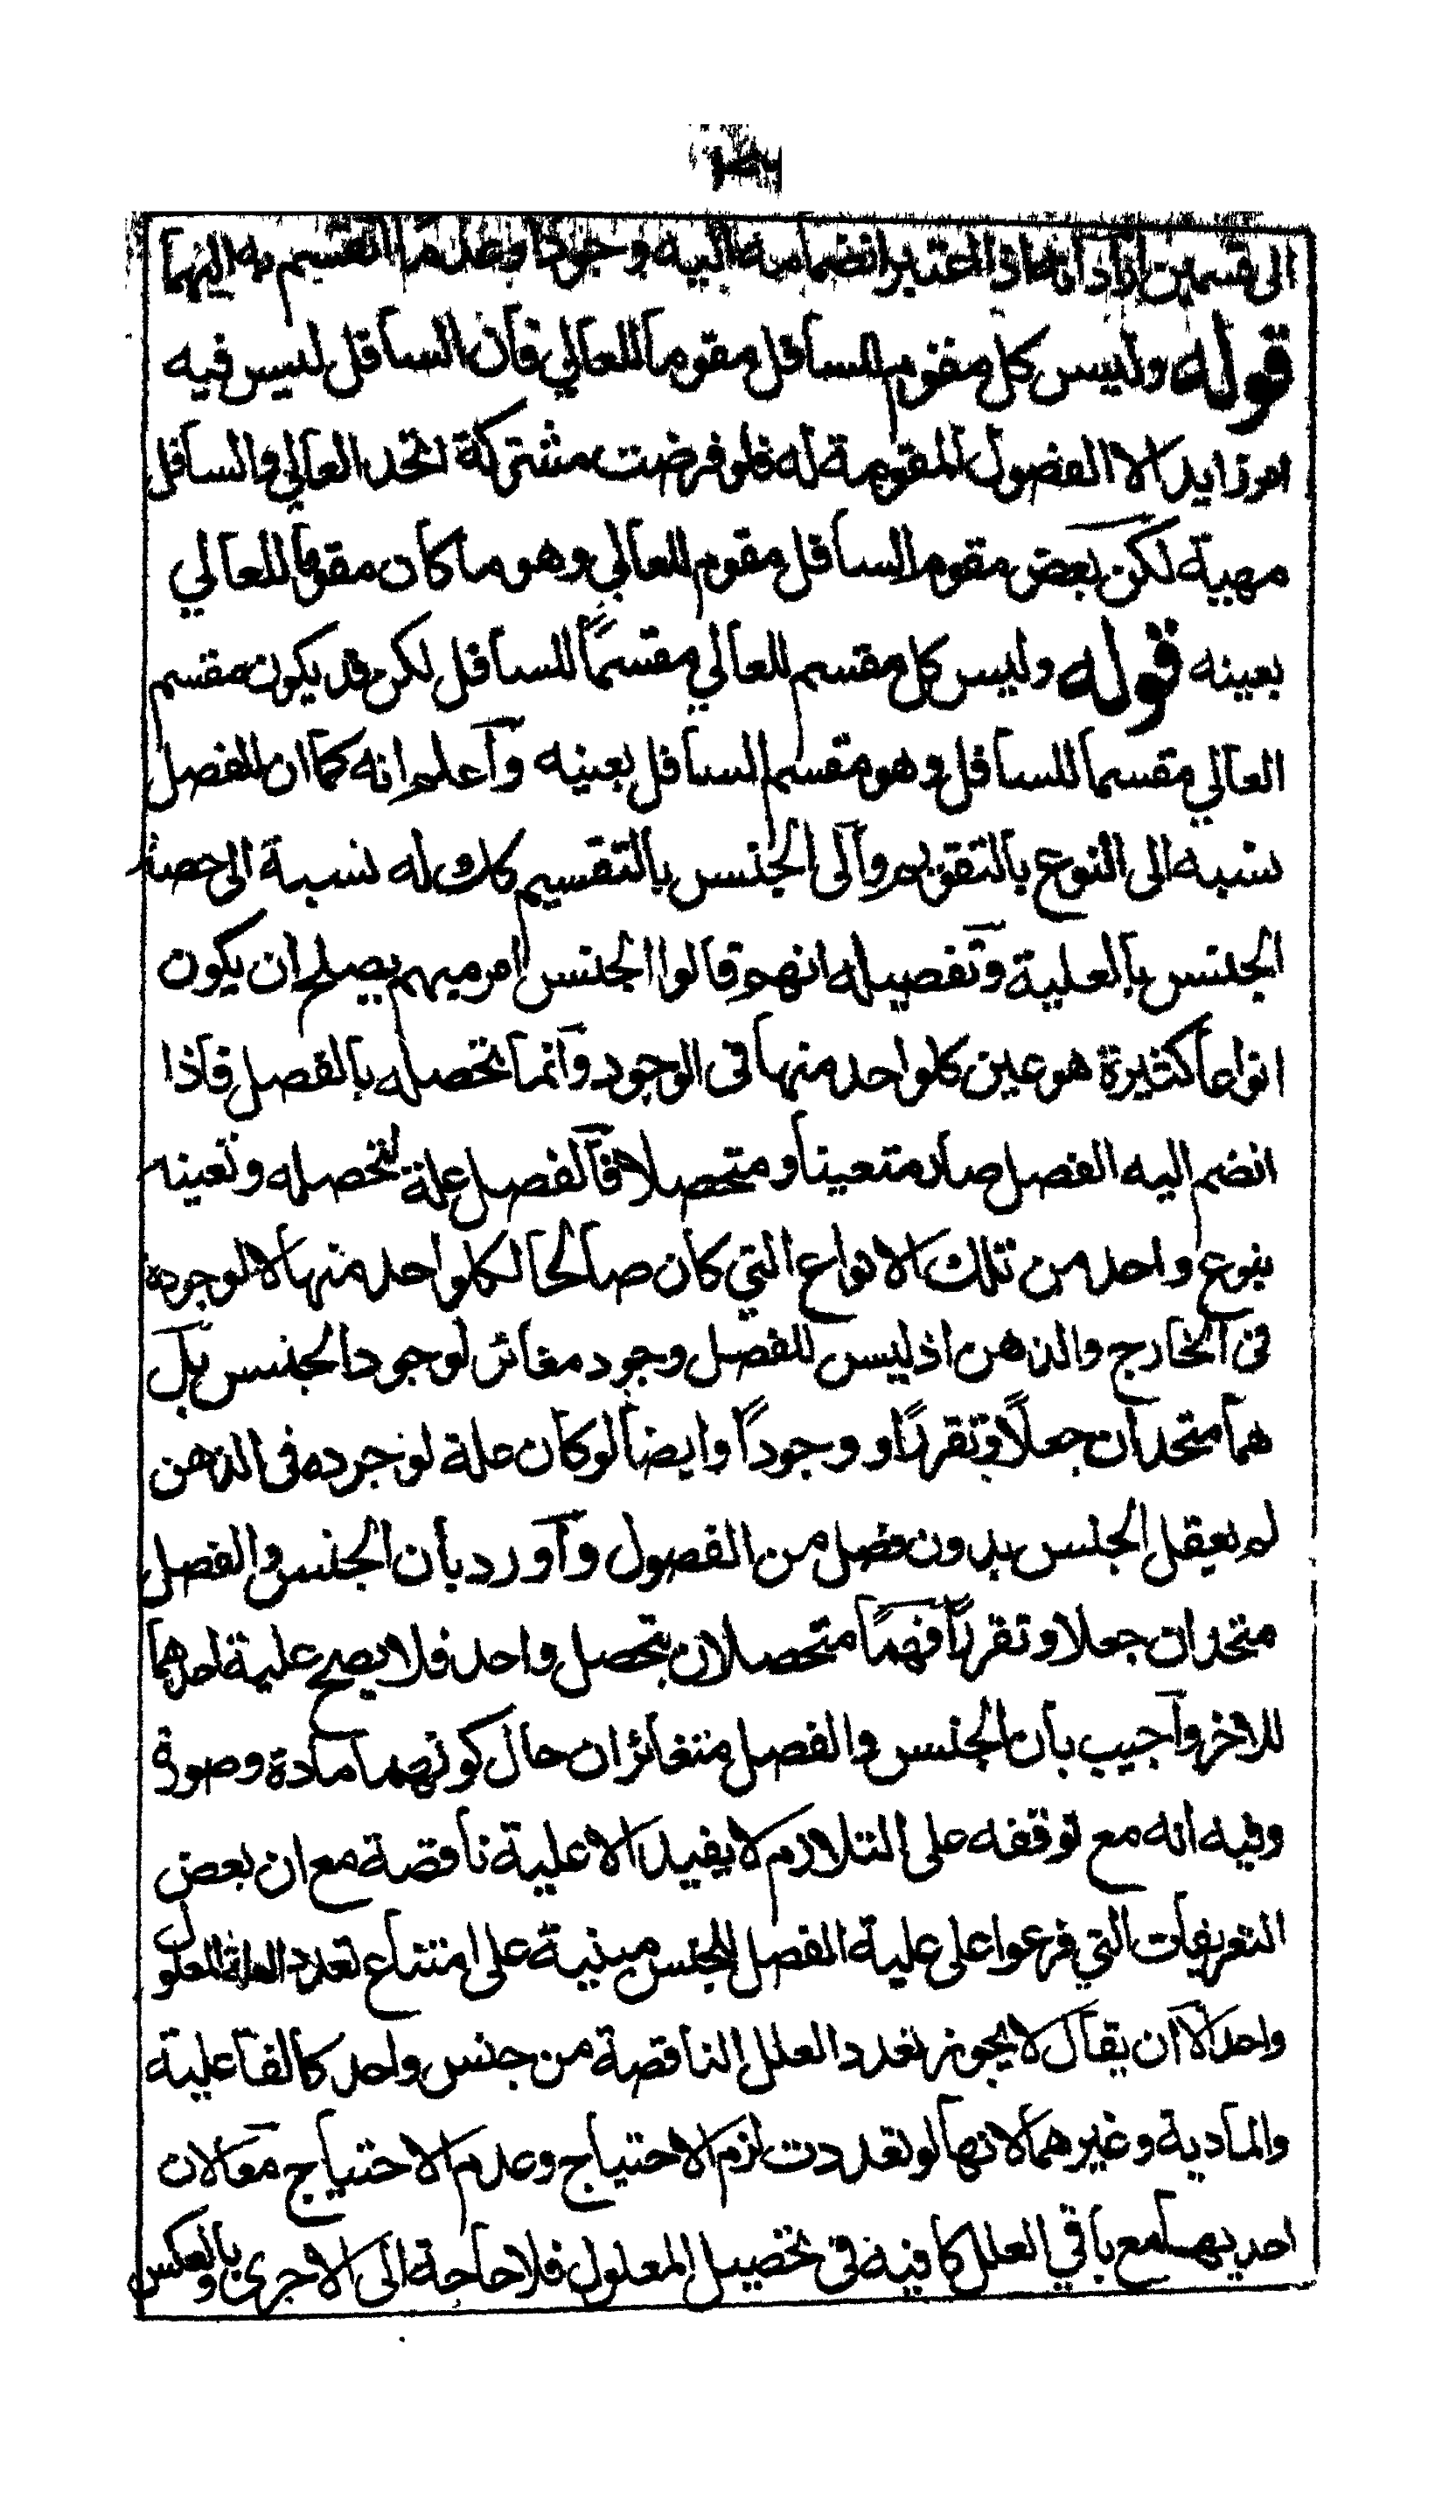 الى قسمين اذا انه اذا اعتبر انضمامه اليه وجودا وعدما انقسم به اليهما
قوله وليس كل مقوم للسافل مقوما للعالي فان السافل ليس فيه
امر زايد الا الفصول المقومة له فلو فرضت مشتركة اتحد العالي والسافل
مهية لكن بعض مقوم السافل مقوم للعالي وهو ما كان مقوما للعالي
بعينه قوله وليس كل مقسم للعالي مقسمًا للسافل لكن قد يكون مقسم
العالي مقسما للسافل وهو مقسم السافل بعينه واعلم انه كما ان للفصل
نسبه الى النوع بالتقويم والى الجنس بالتقسيم كك له نسبة الى حصة
الجنس بالعلية وتفصيله انهم قالوا الجنس امر مبهم يصلح ان يكون
انواعا كثيرة هو عين كلواحد منها في الوجود وانما تحصله بالفصل فاذا
انضم اليه الفصل صار متعينا ومتحصلا فالفصل علة لتحصله وتعينه
بنوع واحد من تلك الانواع التي كان صالحا لكلواحد منها لا لوجوده
في الخارج والذهن اذ ليس للفصل وجود مغائر لوجود الجنس بل
هما متحدان جعلاً وتقررًا ووجوداً وايضا لو كان علة لوجوده في الذهن
لم يعقل الجنس بدون فصل من الفصول واورد بان الجنس والفصل
متحدان جعلا وتقررًا فهما متحصلان بتحصل واحد فلا يصح علية احدهما
للاخر واجيب بان الجنس والفصل متغائران حال كونهما مادة وصورة
وفيه انه مع توقفه على التلازم لا يفيد الا علية ناقصة مع ان بعض
التفريعات التي فرعوا على علية الفصل للجنس مبنية على امتناع تعدد العلة لمعلول
واحد الا ان يقال لا يجوز تعدد العلل الناقصة من جنس واحد كالفاعلية
والمادية وغيرهما لانها لو تعددت لزم الاحتياج وعدم الاحتياج معا لان
احديهما مع باقي العلل كافية في تحصيل المعلول فلا حاجة الى الاخرى وبالعكس